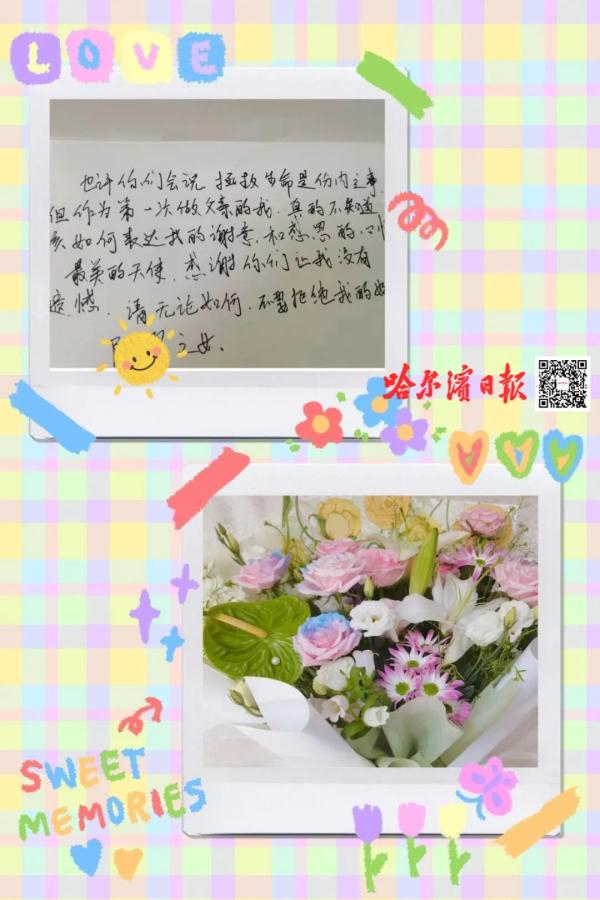 LOVE
也许你们会说 拯救生命是份内之事
但作为第一次做父亲的我，真的不知道
如何表达我的谢意，和感恩的心
最美的天使，感谢你们让我没有
遗憾，请无论如何，不要拒绝我的
之女，
哈尔滨日报
SWEET
MEMORIES